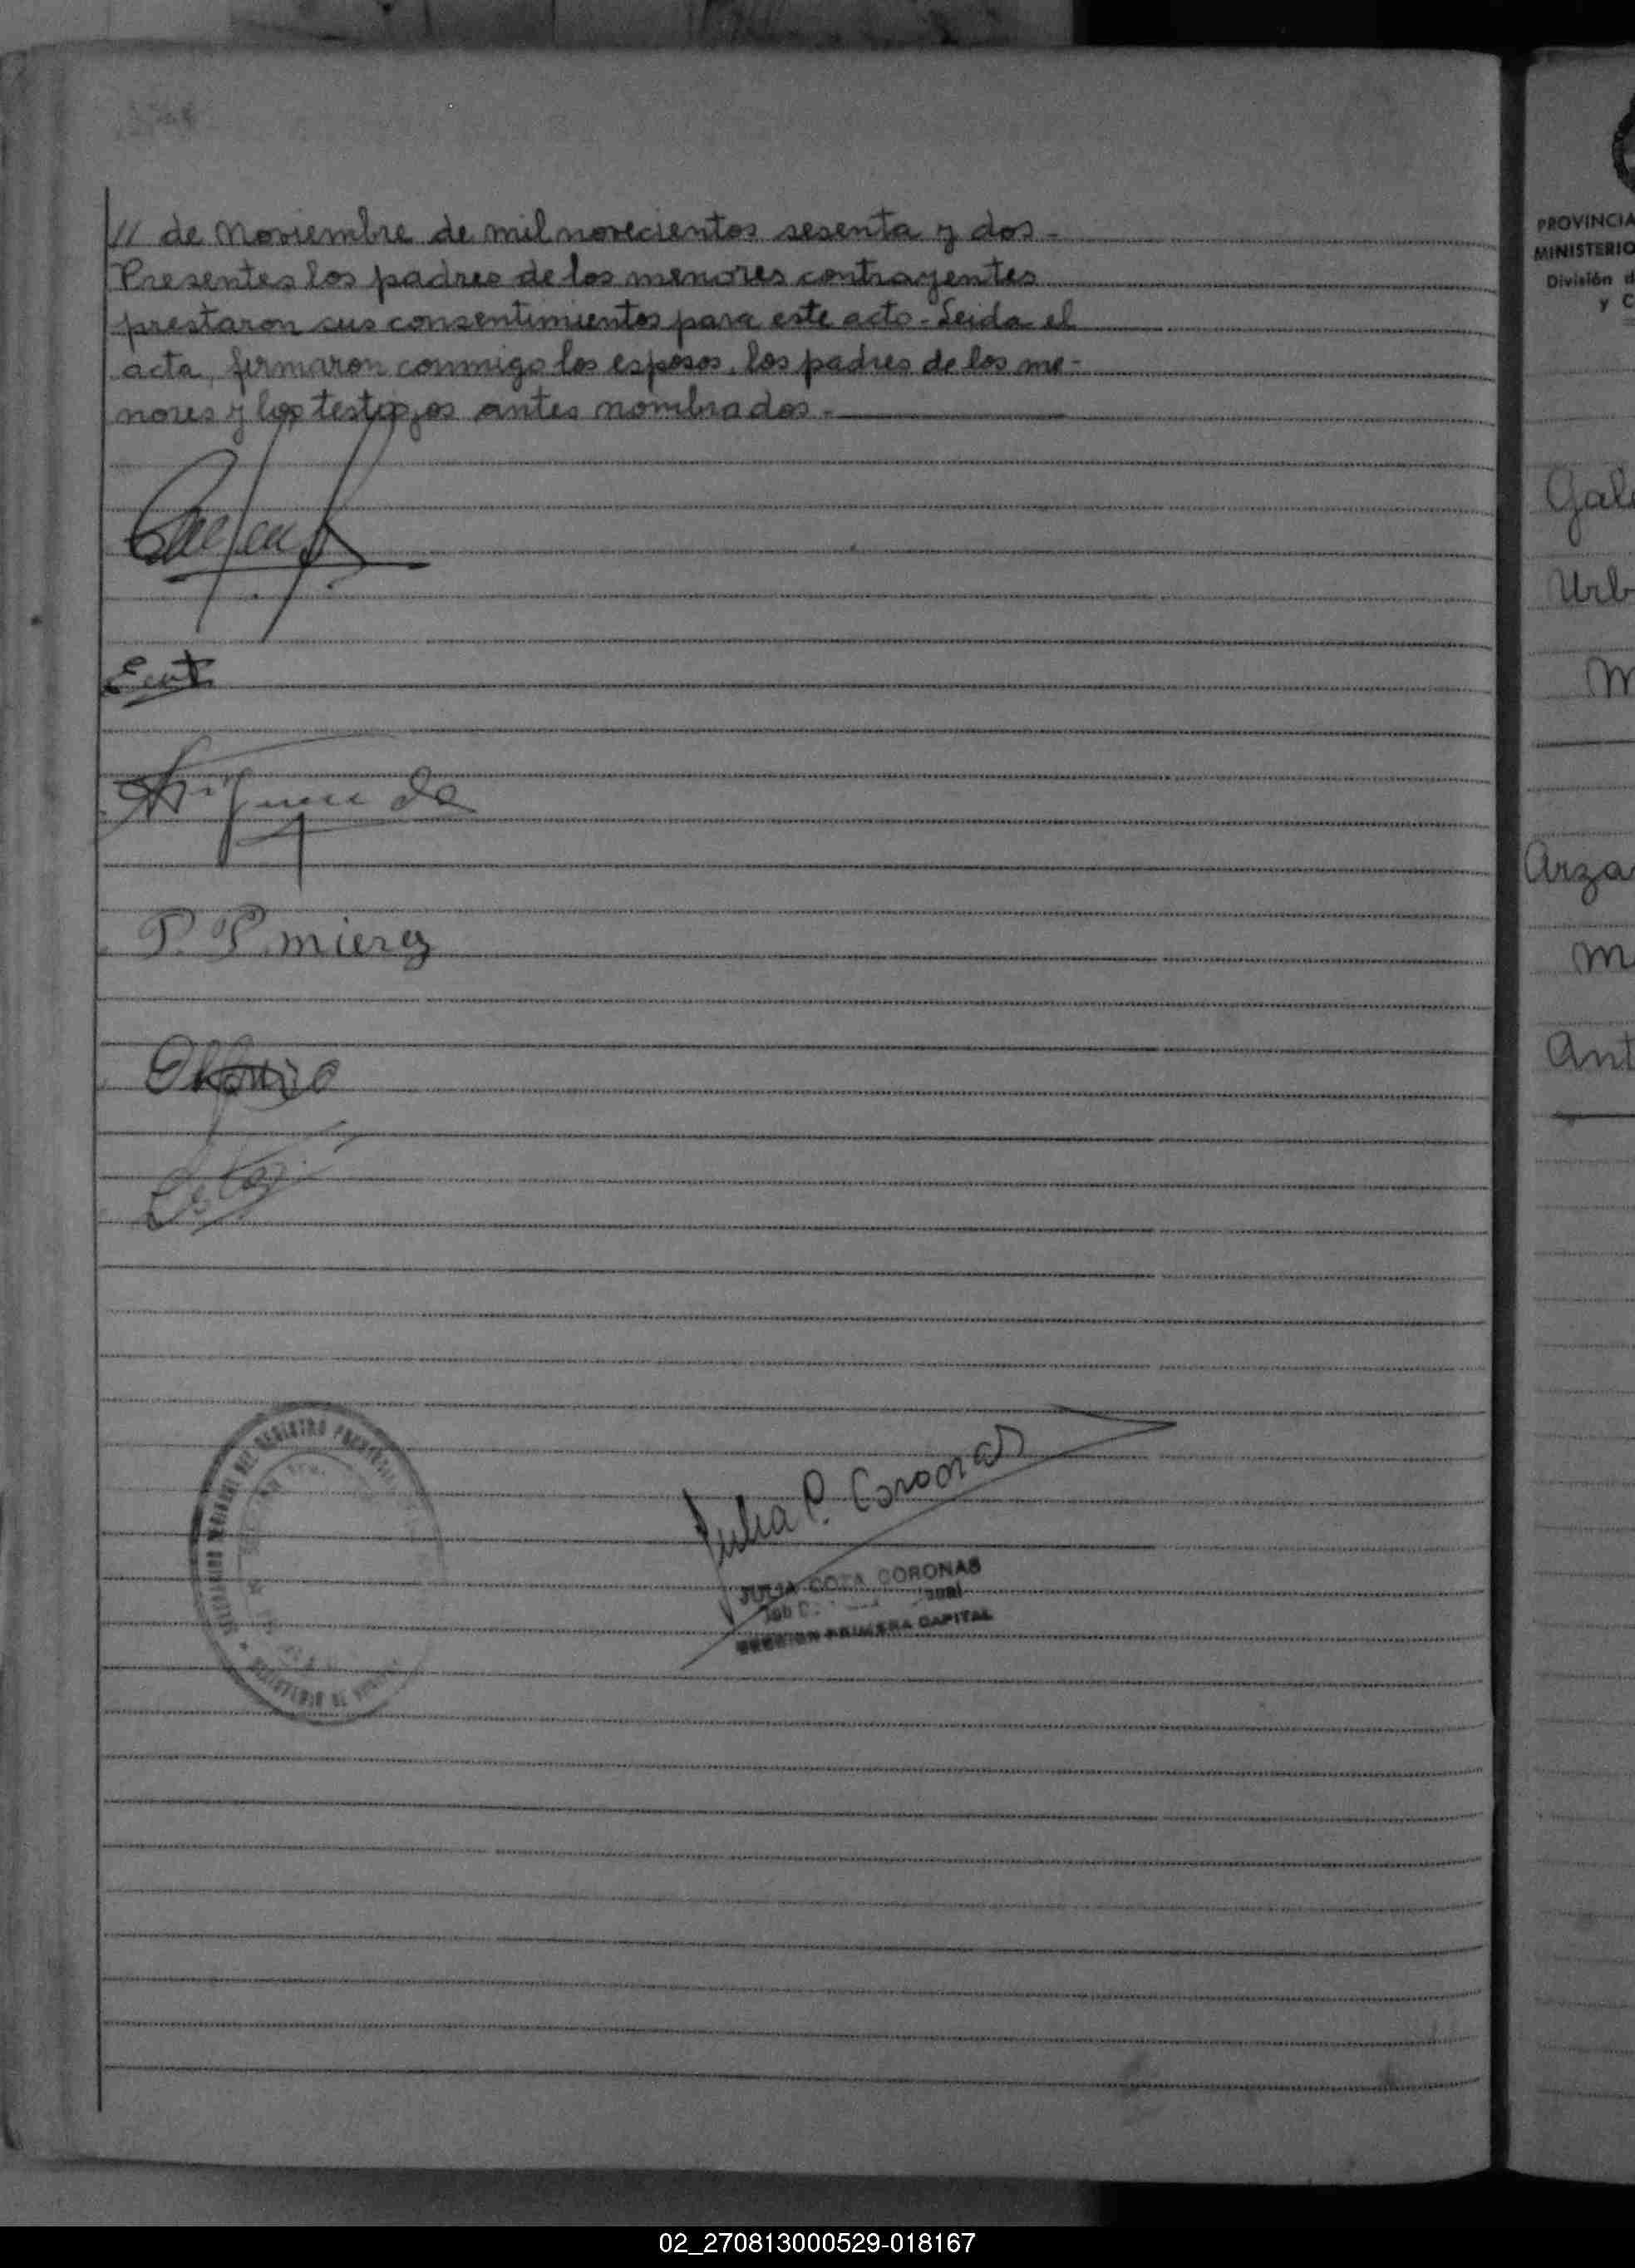 // de Noviembre de mil novecientos sesenta y dos -
Presentes los padres de los menores contrayentes
prestaron sus consentimientos para este acto - Leida el
acta, firmaron conmigo los esposos, los padres de los me-
nores y los testigos antes nombrados.-
P. P. miery
Julia C. Coronas
JULIA COTA CORONAS
SECCION PRIMERA CAPITAL
REGISTRO
PROVINCIA
MINISTERIO
División d
y C
Gal
Urb
M
Arza
M
Ant
02_270813000529-018167